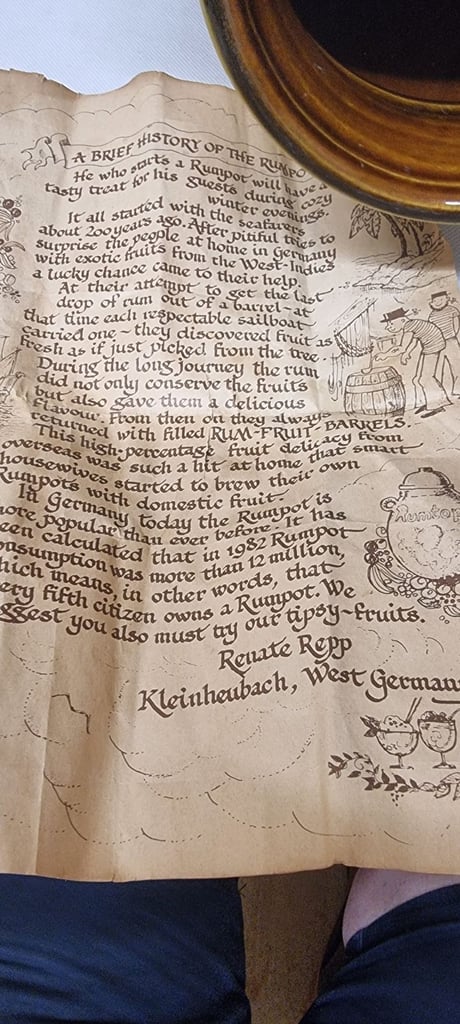 A BRIEF HISTORY OF THE RUMPO
He who starts a Rumpot will have a
tasty treat for his guests during cozy
winter evenings.
It all started with the seafarers
about 200 years ago. After pitiful tries to
surprise the people at home in Germany
with exotic fruits from the West-Indies
a lucky chance came to their help.
At their attempt to get the last
drop of rum out of a barrel-at
that time each respectable sailboat
carried one - they discovered fruit as
fresh as if just picked from the tree.
During the long journey the rum
did not only conserve the fruits
but also gave them a delicious
flavour. From then on they always
returned with filled RUM-FRUIT BARRELS.
This high-percentage fruit delicacy from
overseas was such a hit at home that smart
housewives started to brew their own
Rumpots with domestic fruit.
In Germany today the Rumpot is
ore popular than ever before. It has
een calculated that in 1982 Rumpot
onsumption was more than 12 million,
hich means, in other words, that
ery fifth citizen owns a Rumpot. We
ggest you also must try our tipsy-fruits.
Renate Repp
Kleinheubach, West German
Rumtop